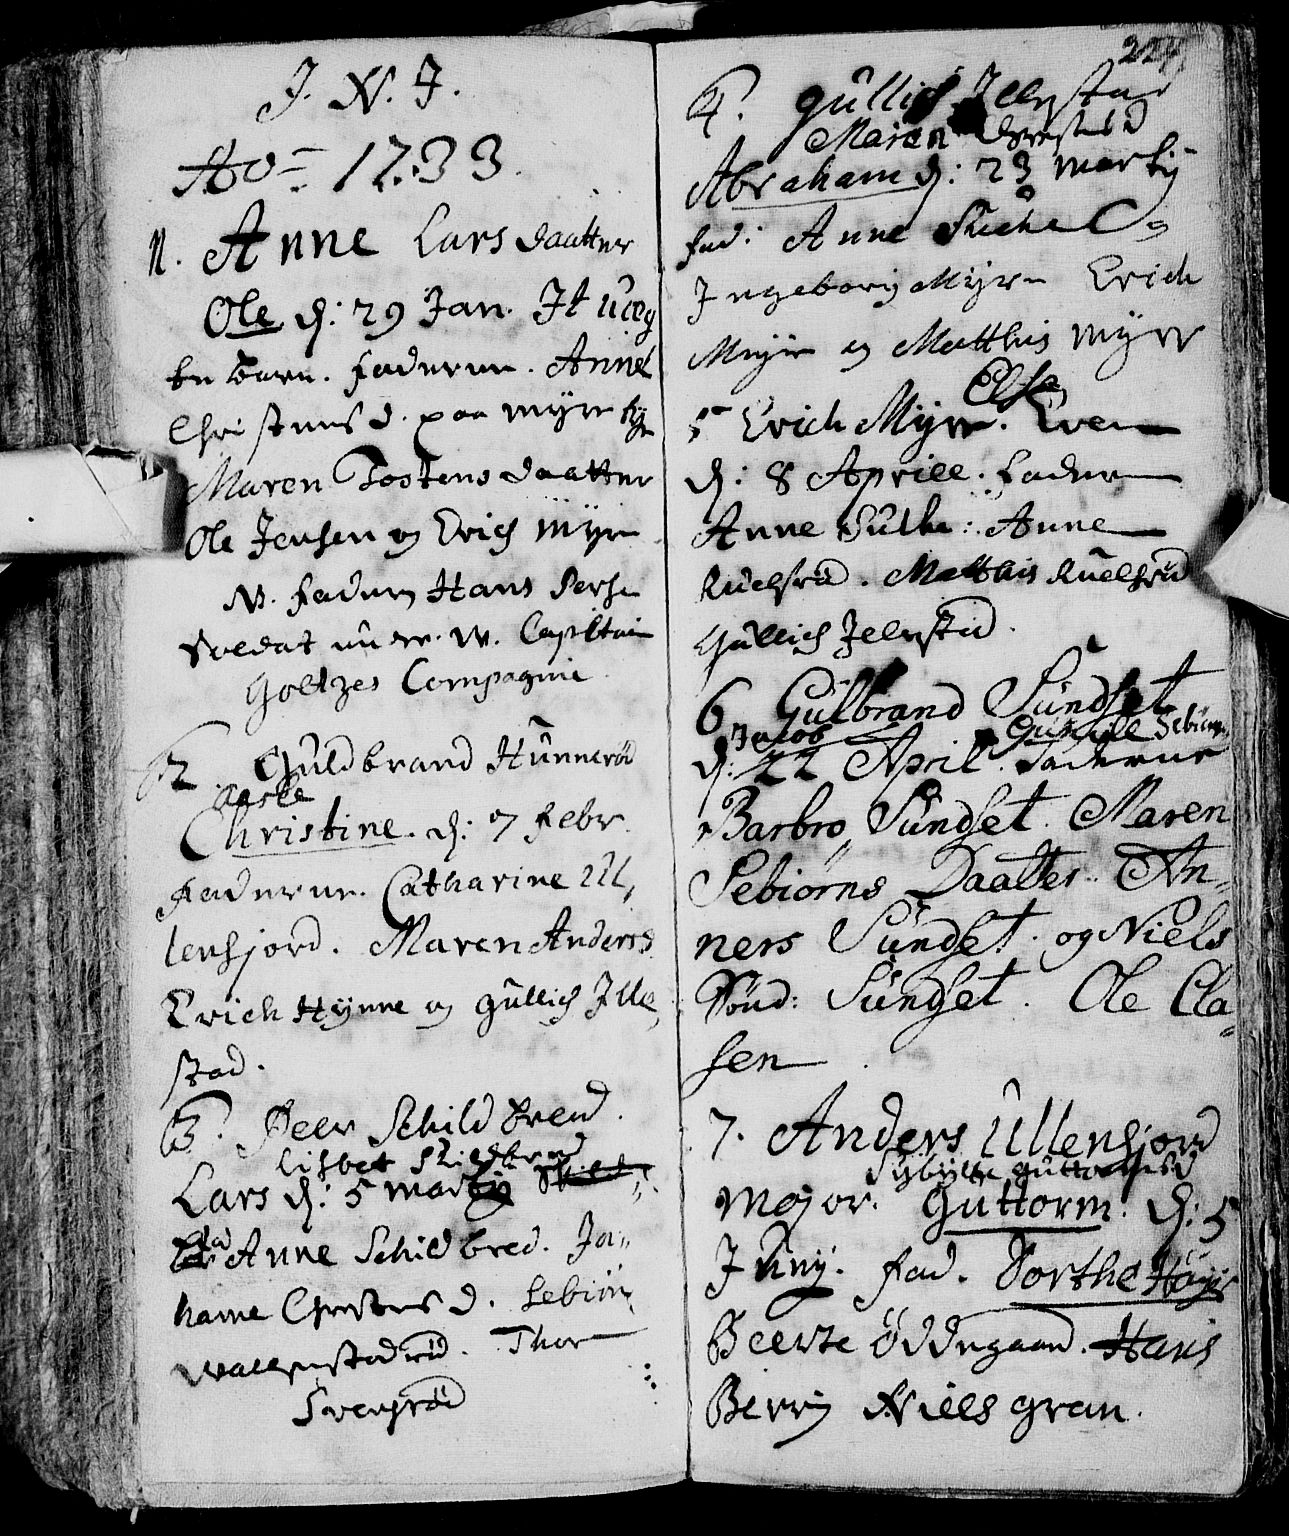 J. N. J.
Ao 1733.
1. Anne Lars daatter
Ole d: 29 Jan. It uæg
te barn. Faderne. Anne
Christensd. paa Myre
Maren Tostens daatter
Ole Jensen og Erich Myre
N. Faderen Hans Perse
Soldat under W. Capitain
Goltzes Compagnie
2 Guldbrand Hunnerød
Aaste
Christine. d: 7 Febr.
Faderne. Catharine Ul,
lensjord. Maren Anders
Erich Hynne og Gullich Jlle,
stad.
3. Peer Schildbred.
Lisbet Skildbred
Lars d: 5 Martij
Fad Anne Schildbred. Jo,,
hanne Christensd. Sebiørn
Wallenstadrød. Thor
Svensrød
224
4. Gullich Jllestad
Maren
Abraham d: 23 Martij
Fad: Anne
Ingeborg Myre Erich
Myre og Matthis Myre
Else
5 Erich Myre. Even
d: 8 Aprill. Faderne
Anne Sulke: Anne
Ruelsrød. Matthis Ruelsrød
Gullich Jllestad.
6 Gulbrand Sundset
Jacob Gunnild Sebiørns
d: 22 April. Faderne
Barbro Sundset. Maren
Sebiørns Daatter. An,,
ners Sundset. og Niels
Sønd: Sundset. Ole Cla,,
sen
7. Anders Ullensjord
Sybille Guttormsd
Major. Guttorm. d: 5
Junij. Fad. Dorthe Høyje
Beerte Øddegaard. Hans
Berrig Niels Gran.